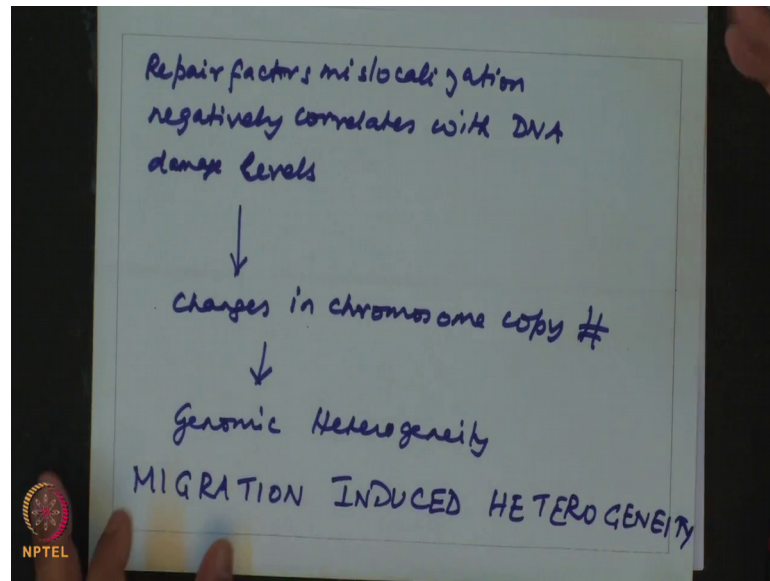 Repair factors mislocalization
negatively correlates with DNA
damage levels
changes in chromosome copy #
Genomic Heterogeneity
MIGRATION INDUCED HETEROGENEITY
NPTEL